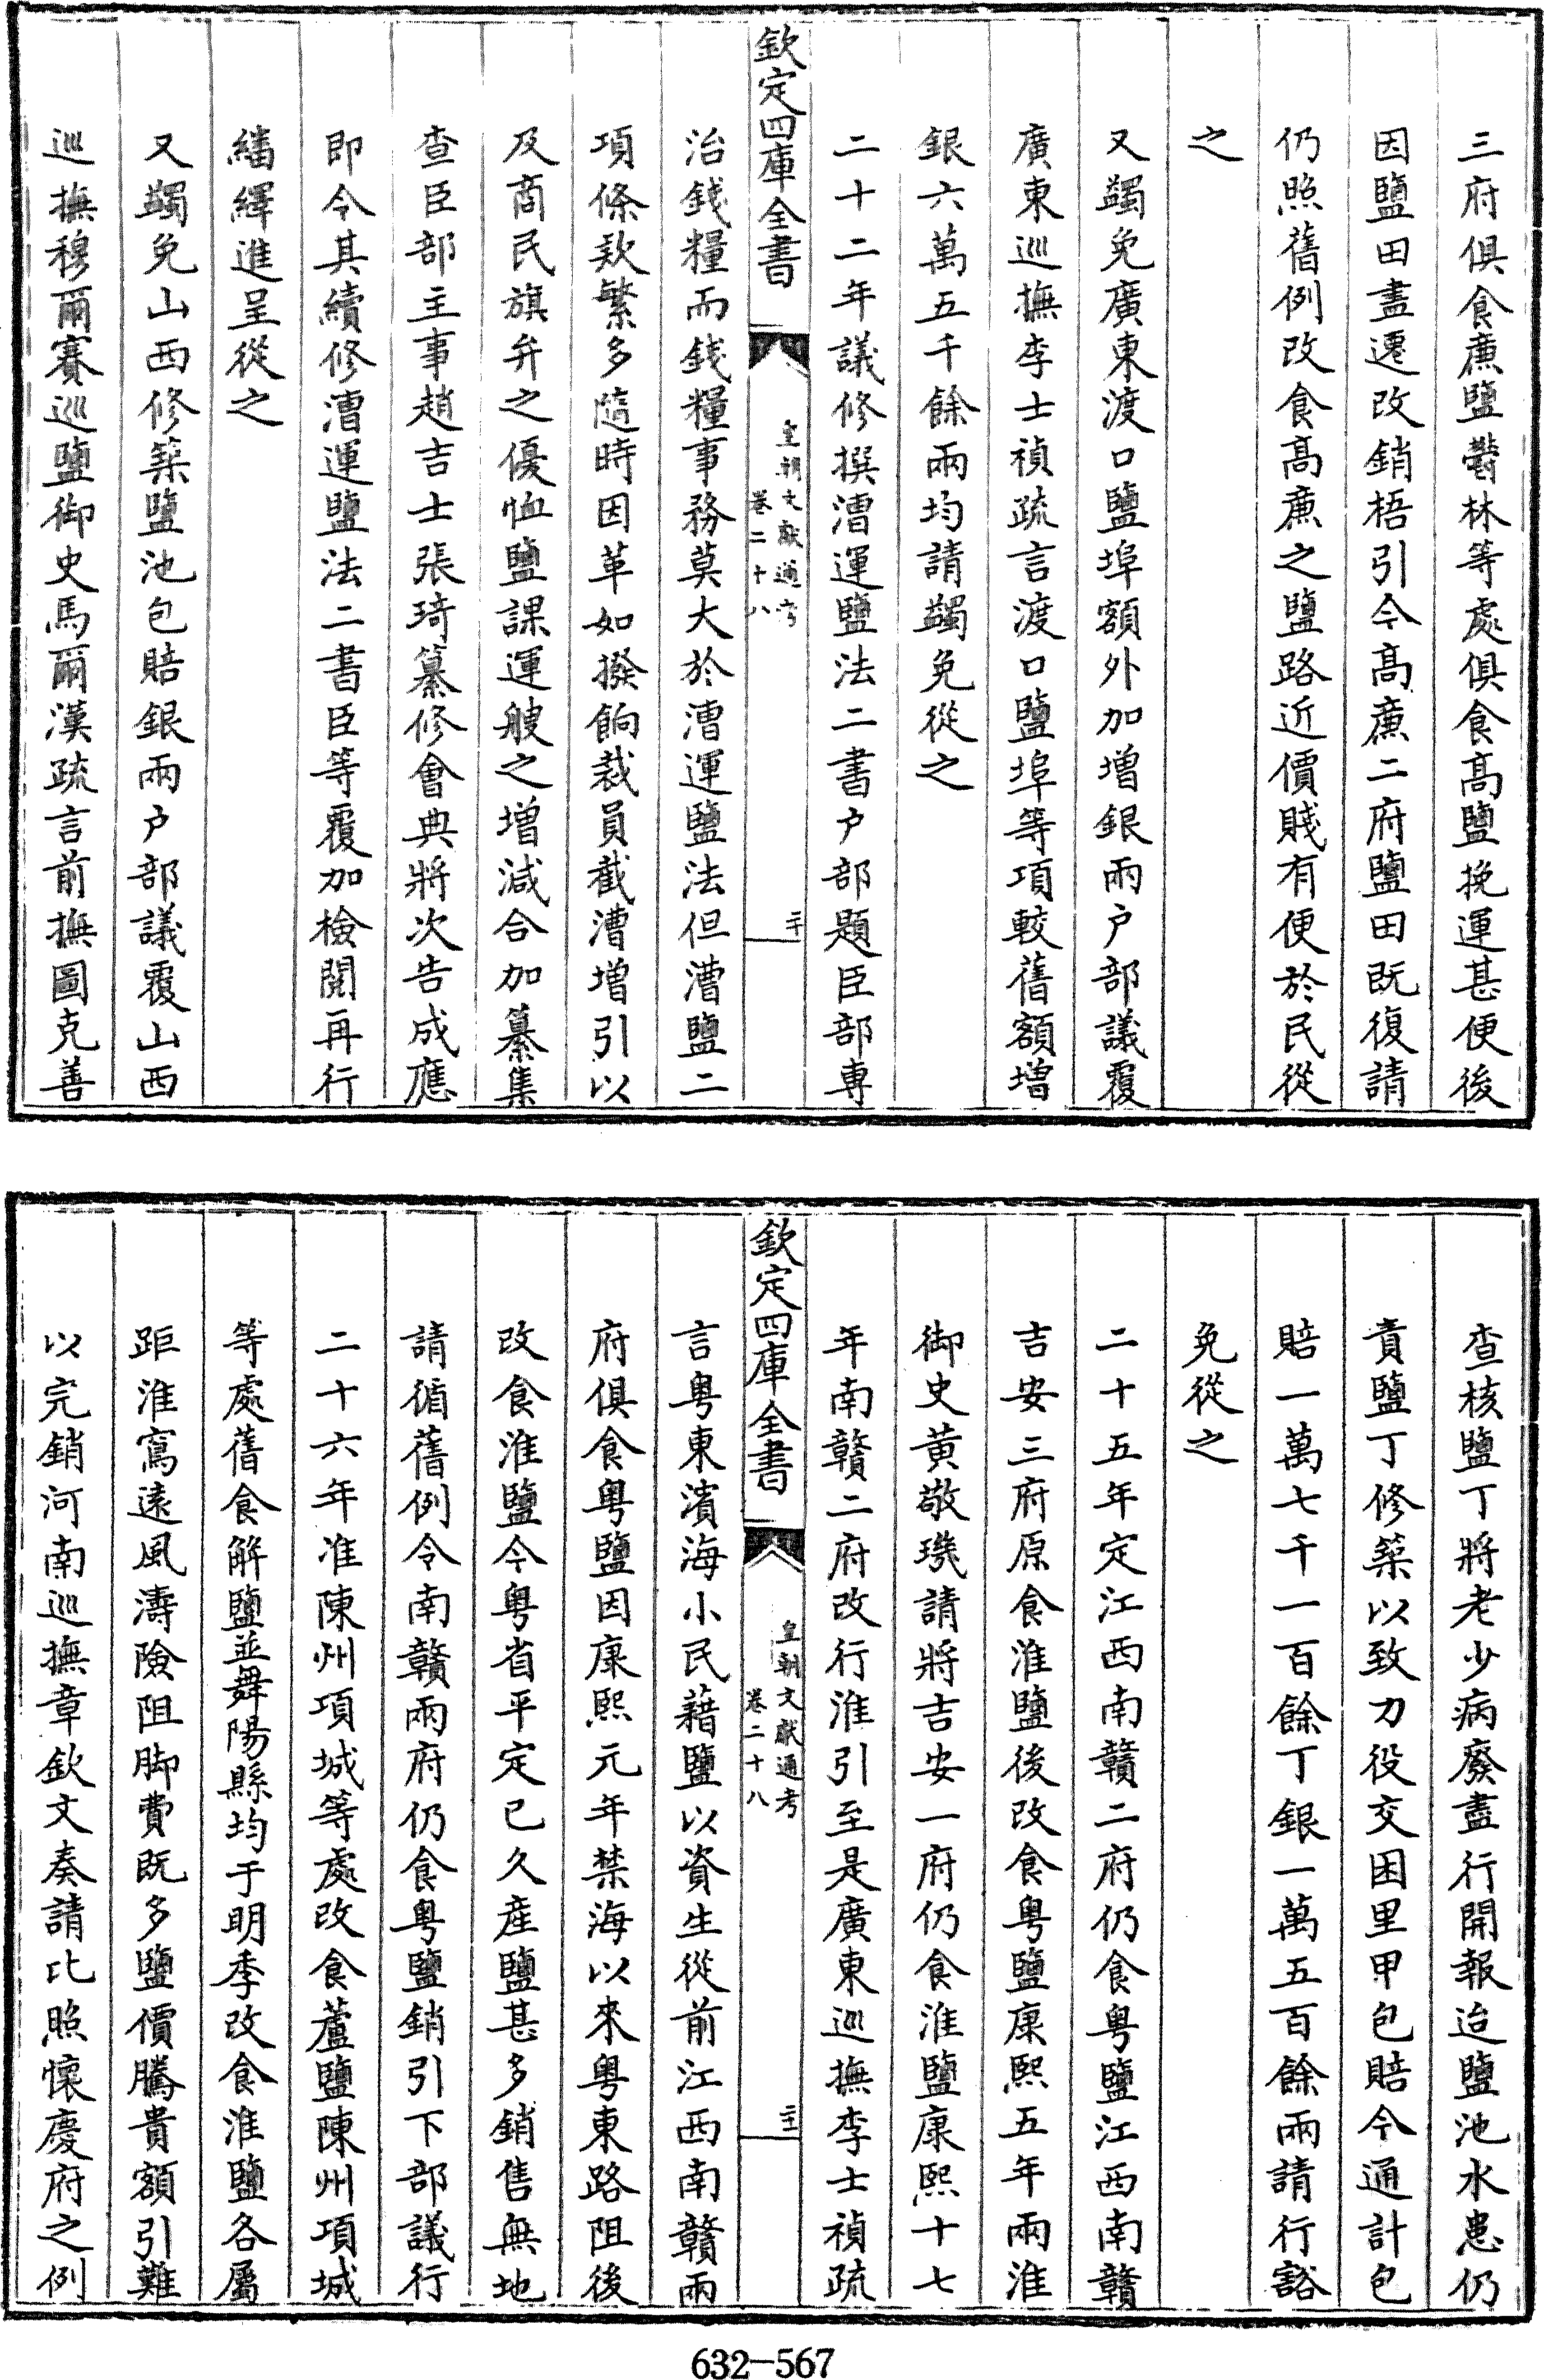 三府俱食㢘鹽鬱林等處俱食髙鹽挽運甚便後
因鹽田盡遷改銷梧引今髙㢘二府鹽田既復請
仍照舊例改食髙㢘之鹽路近價賤有便於民從
之
又蠲免廣東渡口鹽埠額外加增銀兩户部議覆
廣東巡撫李士禎疏言渡口鹽埠等項較舊額增
銀六萬五千餘兩均請蠲免從之
二十二年議修撰漕運鹽法二書户部題臣部専
欽定四庫全書
皇朝文獻通考
卷二十八
二十
治錢糧而錢糧事務莫大於漕運鹽法但漕鹽二
項條款繁多隨時因革如撥餉裁員截漕增引以
及商民旗弁之優恤鹽課運艘之增減合加纂集
查臣部主事趙吉士張琦纂修會典將次告成應
即令其續修漕運鹽法二書臣等覆加檢閱再行
繙繹進呈從之
又蠲免山西修築鹽池包賠銀兩户部議覆山西
巡撫穆爾賽巡鹽御史馬爾漢疏言前撫圖克善
查核鹽丁將老少病廢盡行開報迨鹽池水患仍
責鹽丁修築以致力役交困里甲包賠今通計包
賠一萬七千一百餘丁銀一萬五百餘兩請行豁
免從之
二十五年定江西南贛二府仍食粵鹽江西南贛
吉安三府原食淮鹽後改食粵鹽康熙五年兩淮
御史黃敬璣請將吉安一府仍食淮鹽康熙十七
年南贛二府改行淮引至是廣東巡撫李士禎疏
欽定四庫全書
皇朝文獻通考
卷二十八
二十一
言粵東濱海小民藉鹽以資生從前江西南贛兩
府俱食粵鹽因康熙元年禁海以來粵東路阻後
改食淮鹽今粵省平定已久產鹽甚多銷售無地
請循舊例令南贛兩府仍食粵鹽銷引下部議行
二十六年准陳州項城等處改食蘆鹽陳州項城
等處舊食解鹽並舞陽縣均于明季改食淮鹽各屬
距淮寫遠風濤險阻脚費既多鹽價騰貴額引難
以完銷河南巡撫章欽文奏請比照懷慶府之例
632-567